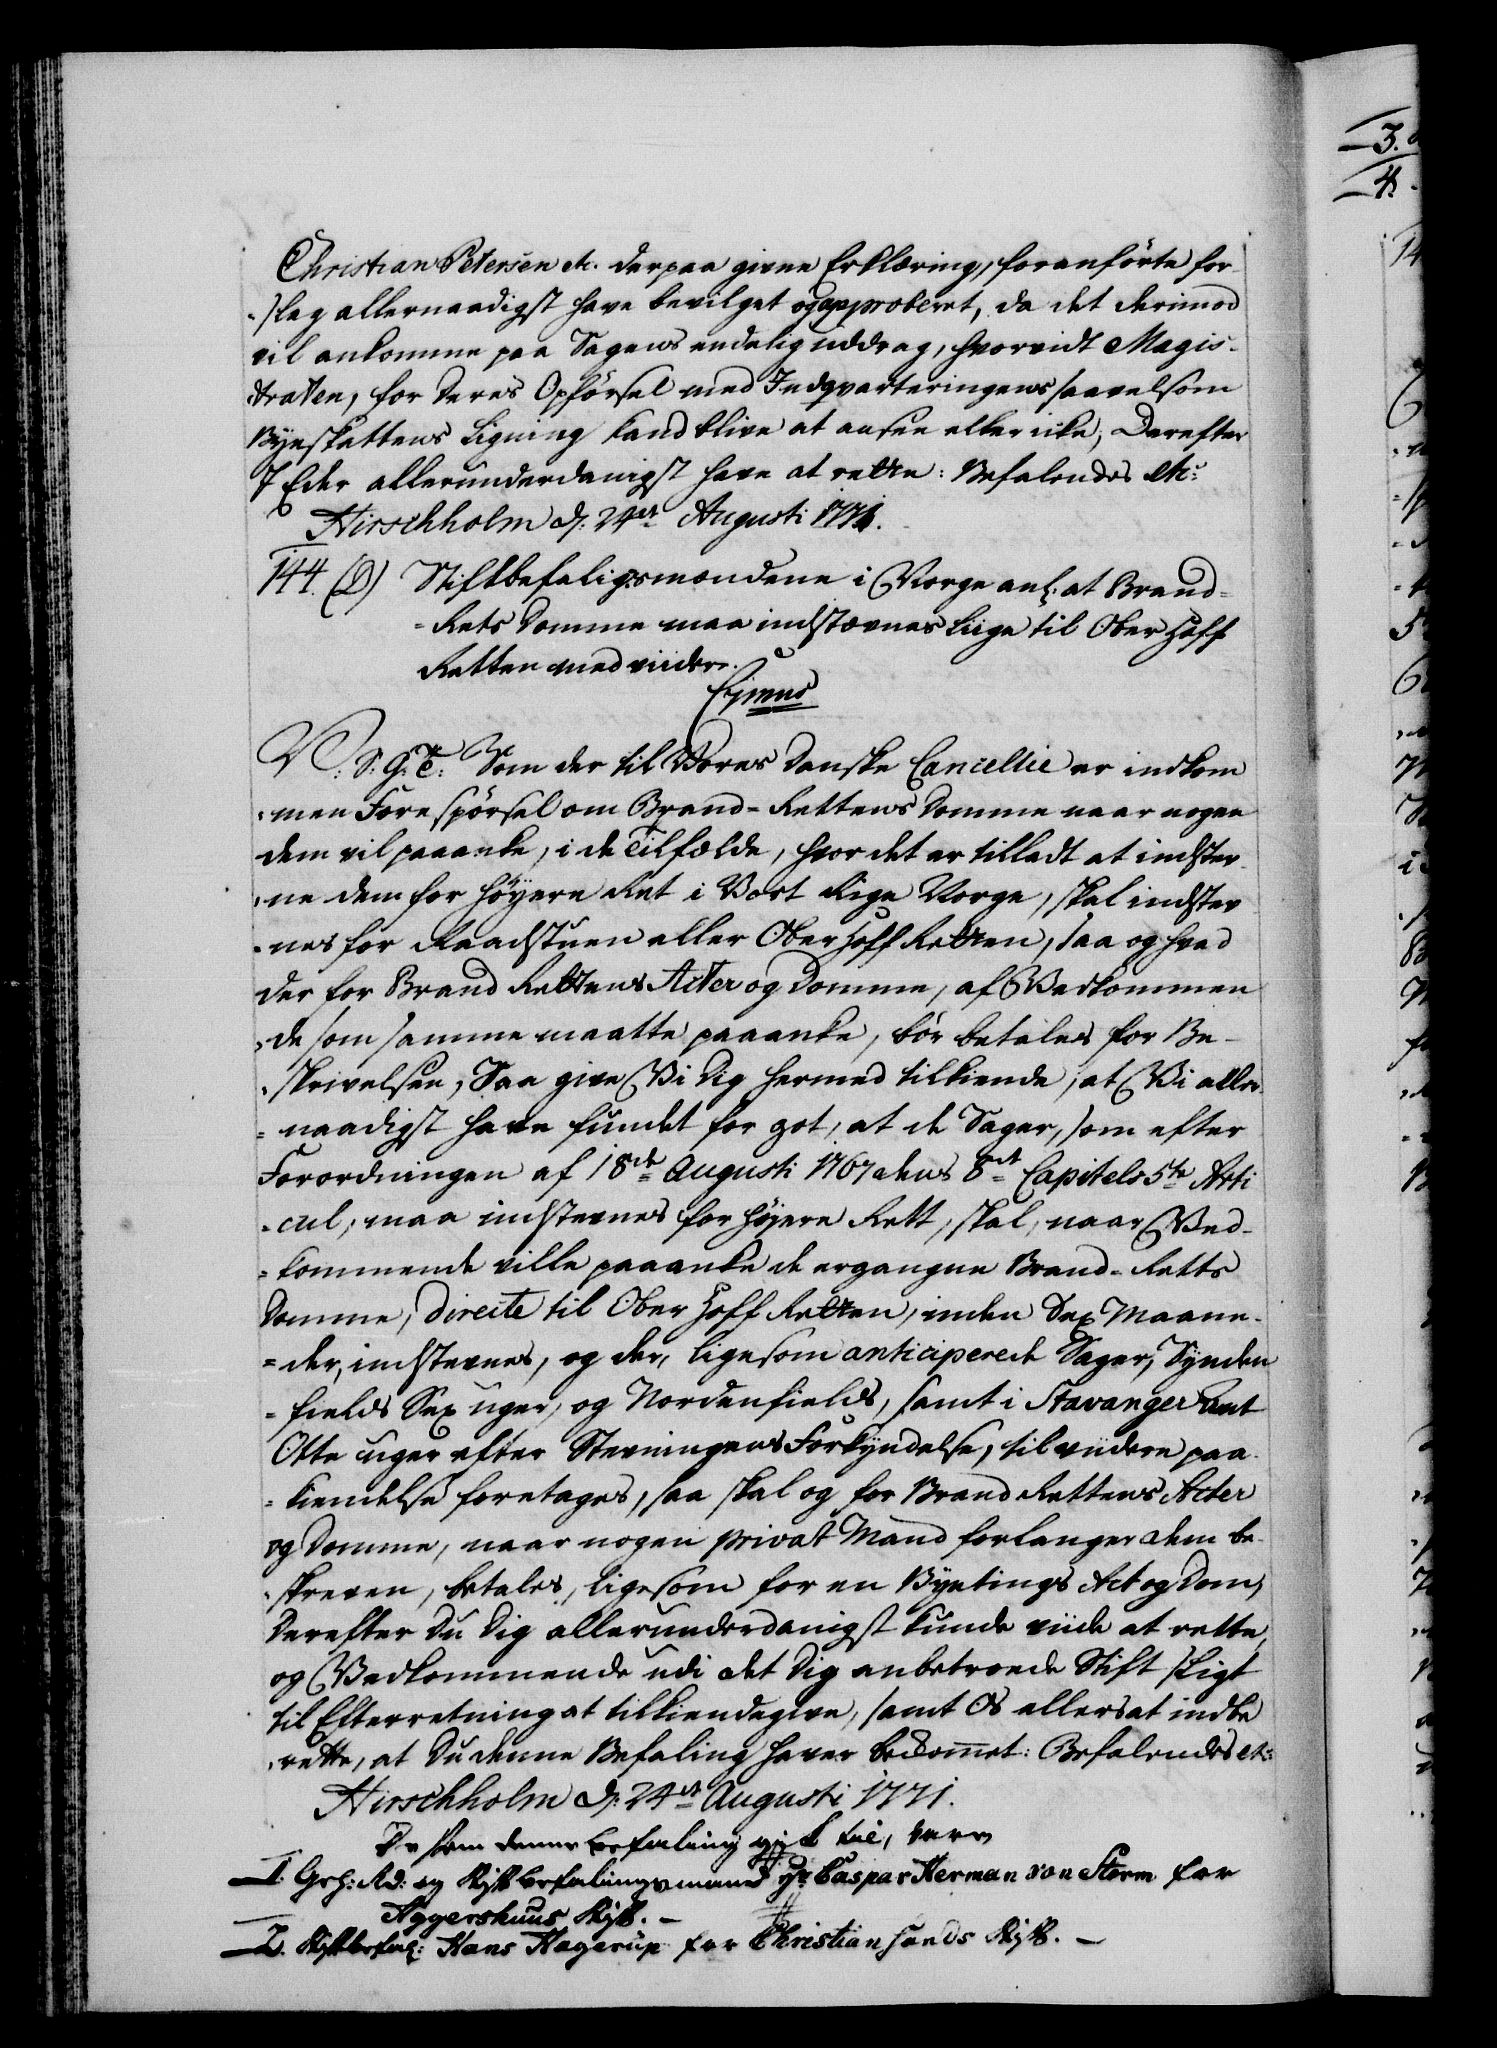 Christian Petersen etc. derpaa givne Erklæring, foranførte for-
-slag allernaadigst have bevilget og approberet, da det derimod
vil ankomme paa Sagens endelig uddrag, hvorvidt Magis-
traten, for deres Opførsel med Indqvarteringens saavelsom
Byeskattens Ligning kand blive at ansee eller icke; Derefter
I Eder allerunderdanigst have at rette: Befalendes etc:
Hirschholm d: 24de Augusti 1771.
144. (D) Stiftbefalingsmændene i Norge anl: at Brand-
-Rets Domme maa indstævnes liige til Ober Hoff
Retten med viidere.
Ejmus
V: S: G: T: Som der til Vores Danske Cancellie er indkom
-men Forespørsel om Brand-Rettens Domme naar nogen
dem vil paaanke, i de Tilfælde, hvor det er tilladt at indstev-
-ne dem for høyere Ret i Vort Rige Norge, skal indstev
-nes for Raadstuen eller Ober Hoff Retten, saa og hvad
der for Brand Rettens Acter og Domme, af Vedkommen
-de som samme maatte paaanke, bør betales for Be-
-skrivelsen, Saa give Vi Dig hermed tilkiende, at Vi aller-
-naadigst have fundet for got, at de Sager, som efter
Forordningen af 18de Augusti 1767 dens 8de Capitels 5te Arti
-cul, maa indstevnes for høyere Rett, skal, naar Ved-
-kommende ville paaanke de ergangne Brand-Retts
Domme, directe til Ober Hoff Retten, inden Sex Maane-
-der, indstevnes, og der, ligesom anticiperede Sager, Synden
-fields Sex uger, og Nordenfields, samt i Stavanger Amt
Otte uger efter Stevningens Forkyndelse, til viidere paa-
-kiendelse foretages, saa skal og for Brand Rettens Acter
og Domme, naar nogen privat Mand forlanger dem be-
-skreven, betales, ligesom for en Byetings Act og Dom,
Derefter Du Dig allerunderdanigst kunde viide at rette,
og Vedkommende udi det Dig anbetroede Stift sligt
til Efterretning at tilkiendegive, samt Os allers at indbe
-rette, at Du denne Befaling haver bekommet: Befalendes etc:
Hirschholm d: 24de Augusti 1771.
De som denne befaling gik til, vare
1. Geh: Rd: og Stiftbefalingsmand Hr. Caspar Herman von Storm for
Aggershuus Stift. -
2. Stiftbefal: Hans Hagerup for Christiansands Stift. -
3.
4.